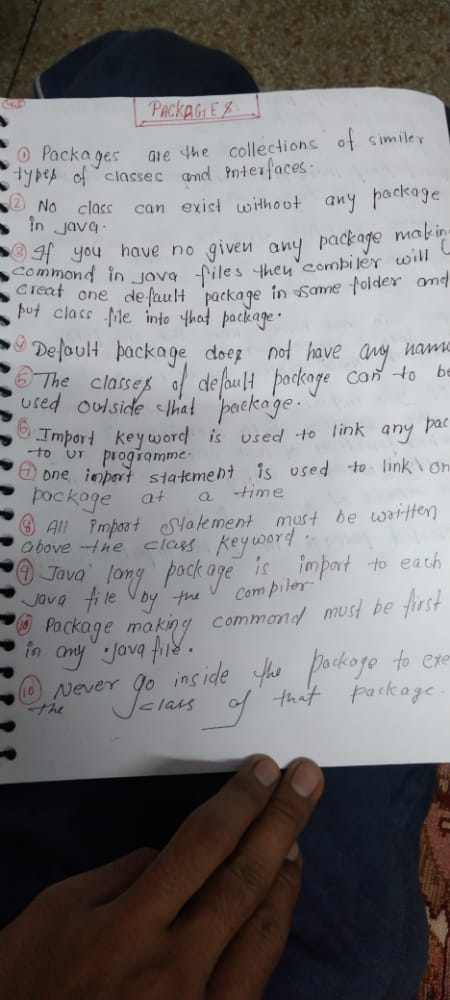 PACKAGES.
① Packages are the collections of similer
types of classes and interfaces.
② No class can exist without any package
in java.
③ If you have no given any package making
commond in java files then compiler will
creat one default package in ssame folder and
put class file into that package.
④ Default package does not have any name
⑤ The classes of default package can to be
used outside that package.
⑥ Import keyword is used to link any pac
to ur programme.
⑦ one import statement is used to link on
package at a time
⑧ All import statement must be written
above the class keyword.
⑨ Java lang package is import to each
java file by the compiler
⑩ Package making commond must be first
in any .java file.
⑩ Never go inside the package to exe
the class of that package.